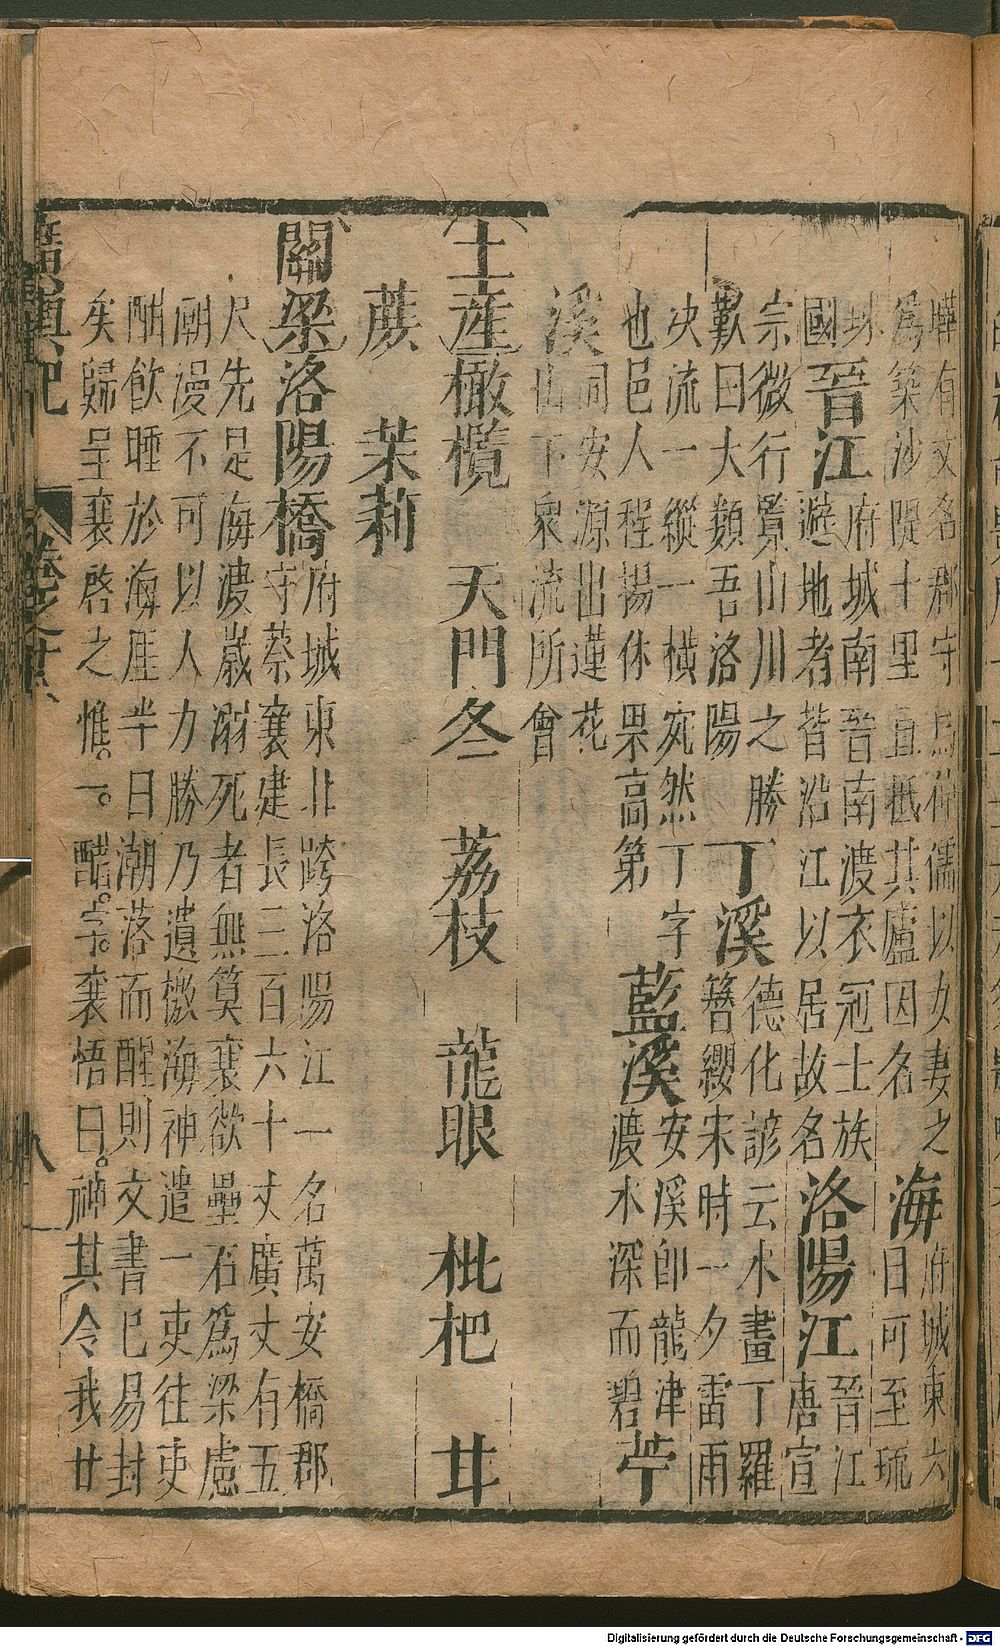 曄有文名郡守烏荷儒以女妻之
為築沙隄十里直抵其廬因名 海 府城東六
日可至琉
球
國 晉江 府城南晉南渡衣冠士族
避地者皆沿江以居故名 洛陽江 晉江
唐宣
宗微行覽山川之勝
歎曰大類吾洛陽 丁溪 德化諺云水畫丁羅
簪纓宋時一夕雷雨
决流一縱一橫宛然丁字
也邑人程揚休果高第 藍溪 安溪卽龍津
渡水深而碧 苧
溪 同安源出蓮花
山下衆流所會
土産 橄欖 天門冬 荔枝 龍眼 枇杷 甘
蔗 茉莉
關梁 洛陽橋 府城東北跨洛陽江一名萬安橋郡
守蔡襄建長三百六十丈廣丈有五
尺先是海渡歲溺死者無筭襄欲壘石爲梁慮
潮漫不可以人力勝乃遺檄海神遣一吏往吏
酣飲睡於海厓半日潮落而醒則文書已易封
矣歸呈襄啓之惟一醋字襄悟曰神其令我廿
卷之
八
Digitalisierung gefördert durch die Deutsche Forschungsgemeinschaft - DFG